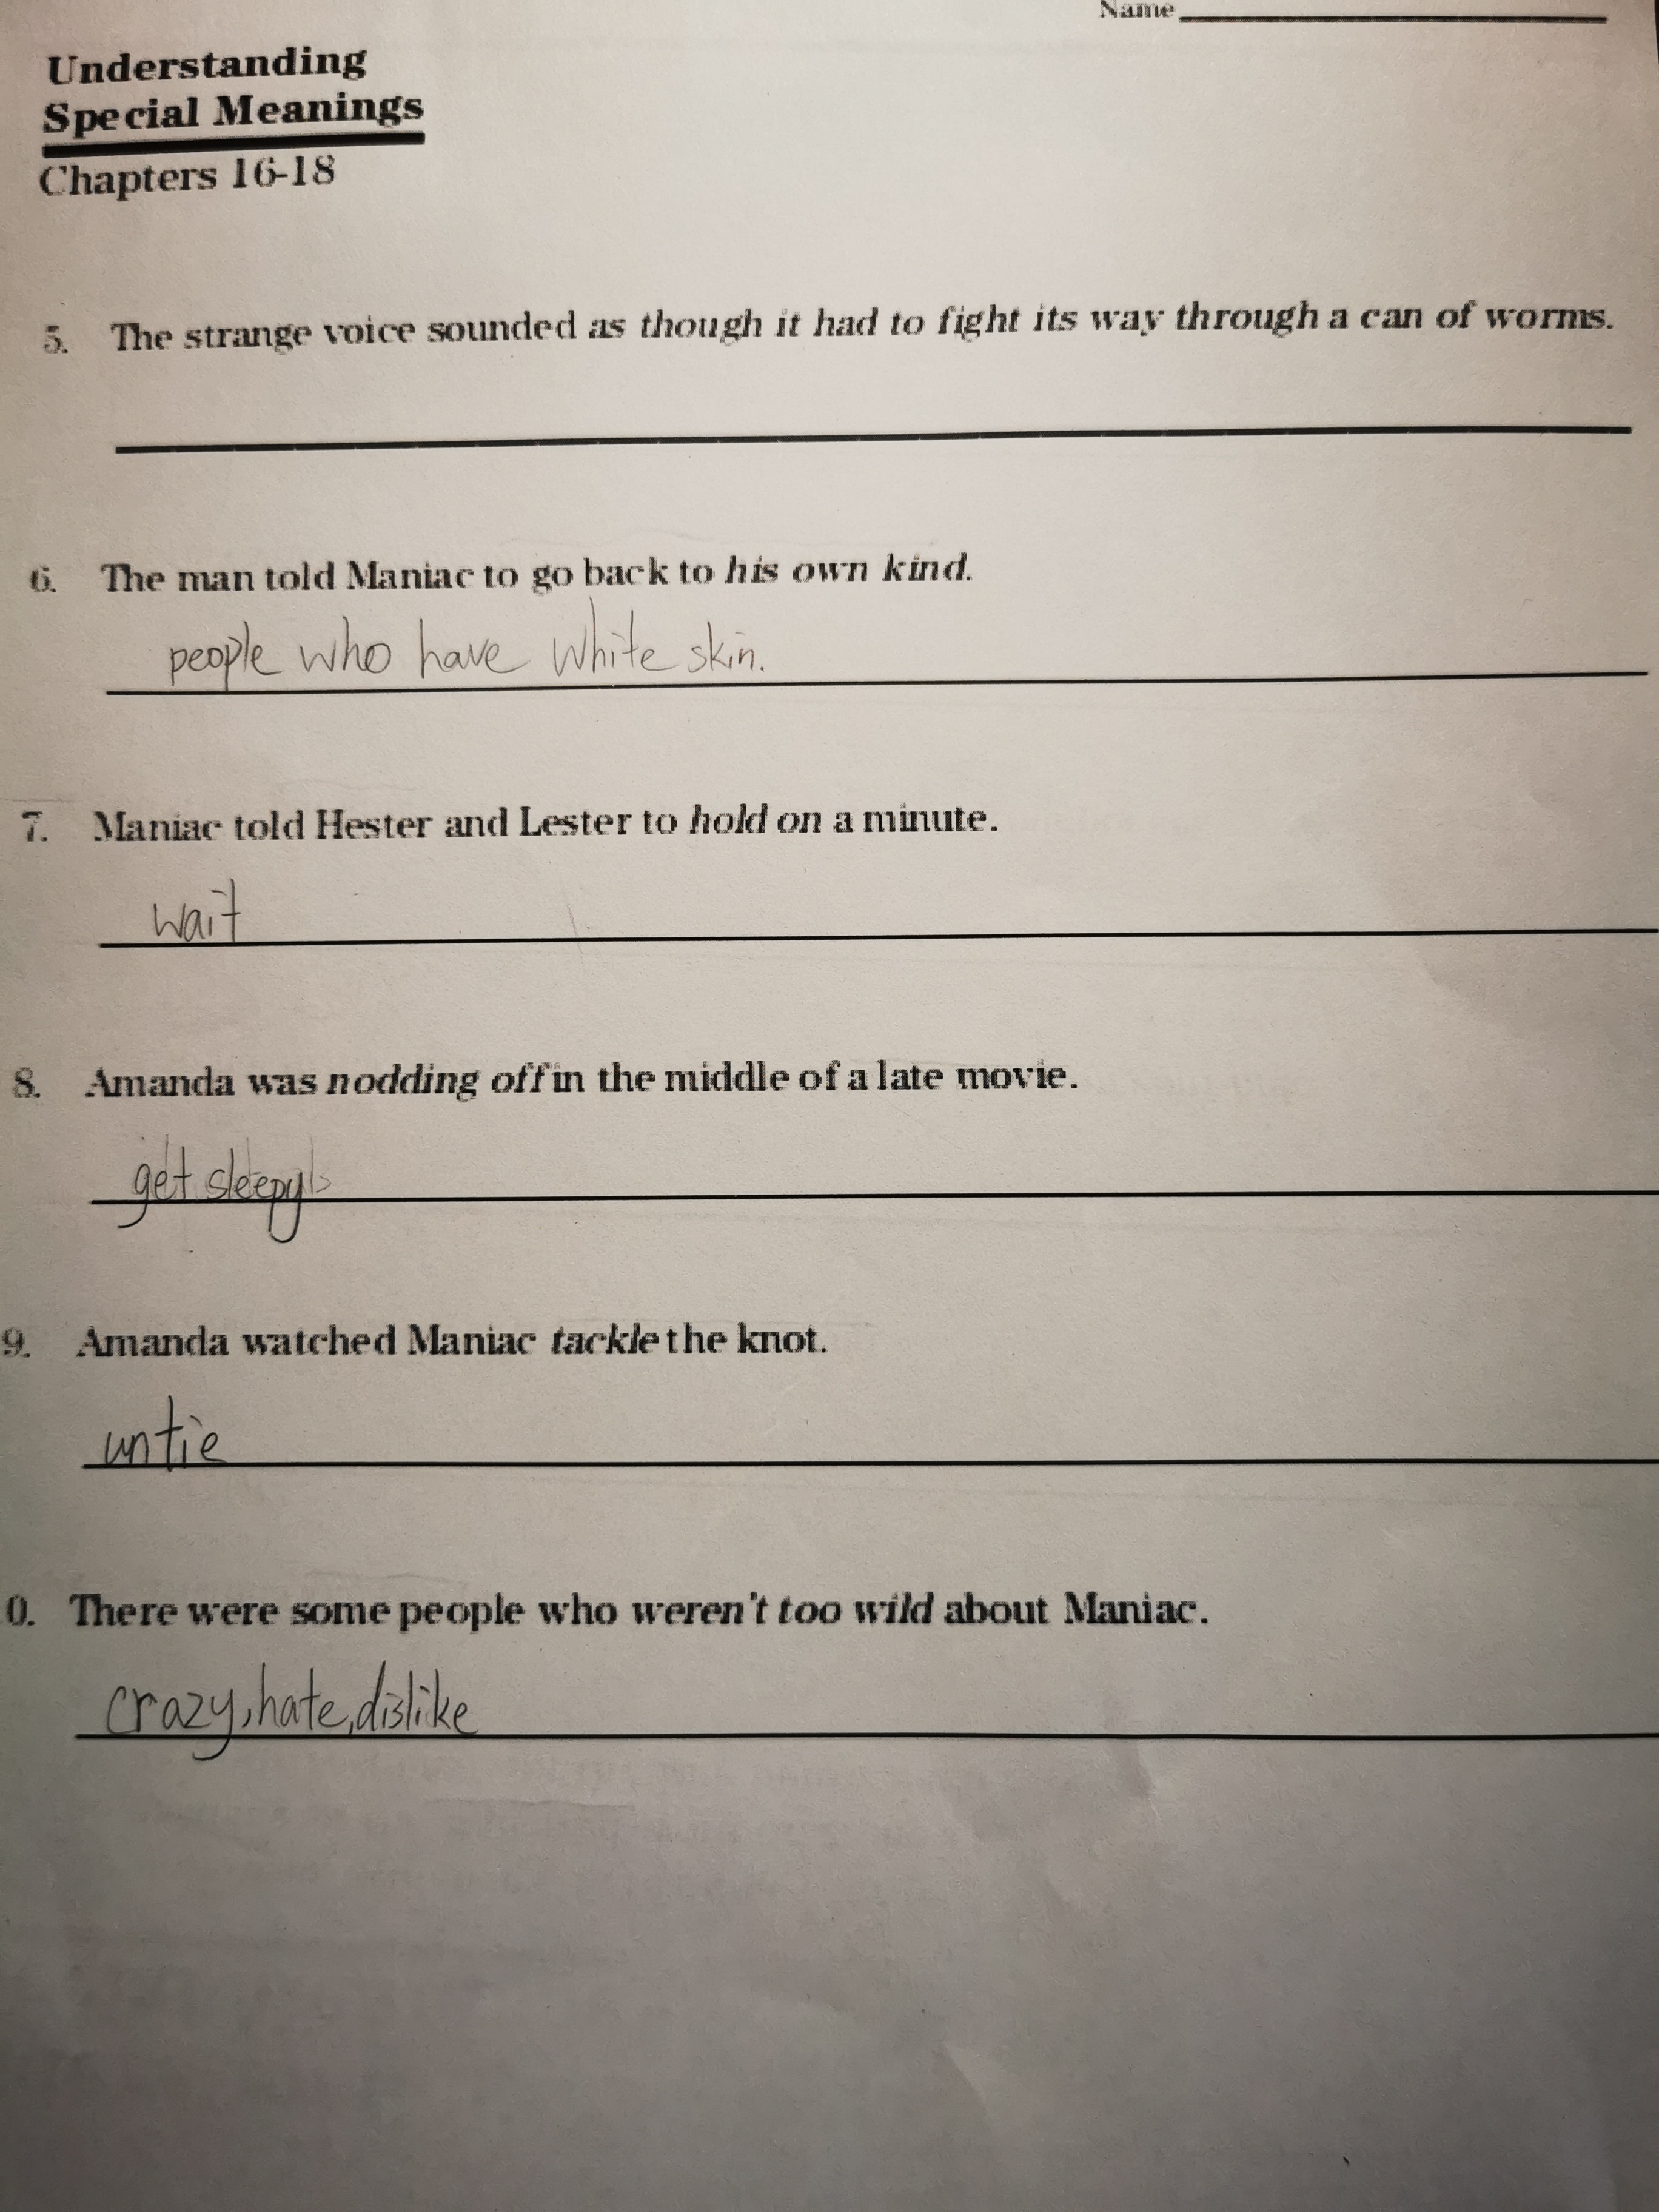 Name
Understanding
Special Meanings
Chapters 16-18
5. The strange voice sounded as though it had to fight its way through a can of worms.
6. The man told Maniac to go back to his own kind.
people who have white skin.
7. Maniac told Hester and Lester to hold on a minute.
wait
8. Amanda was nodding off in the middle of a late movie.
get sleepy
9. Amanda watched Maniac tackle the knot.
untie
0. There were some people who weren't too wild about Maniac.
crazy, hate, dislike